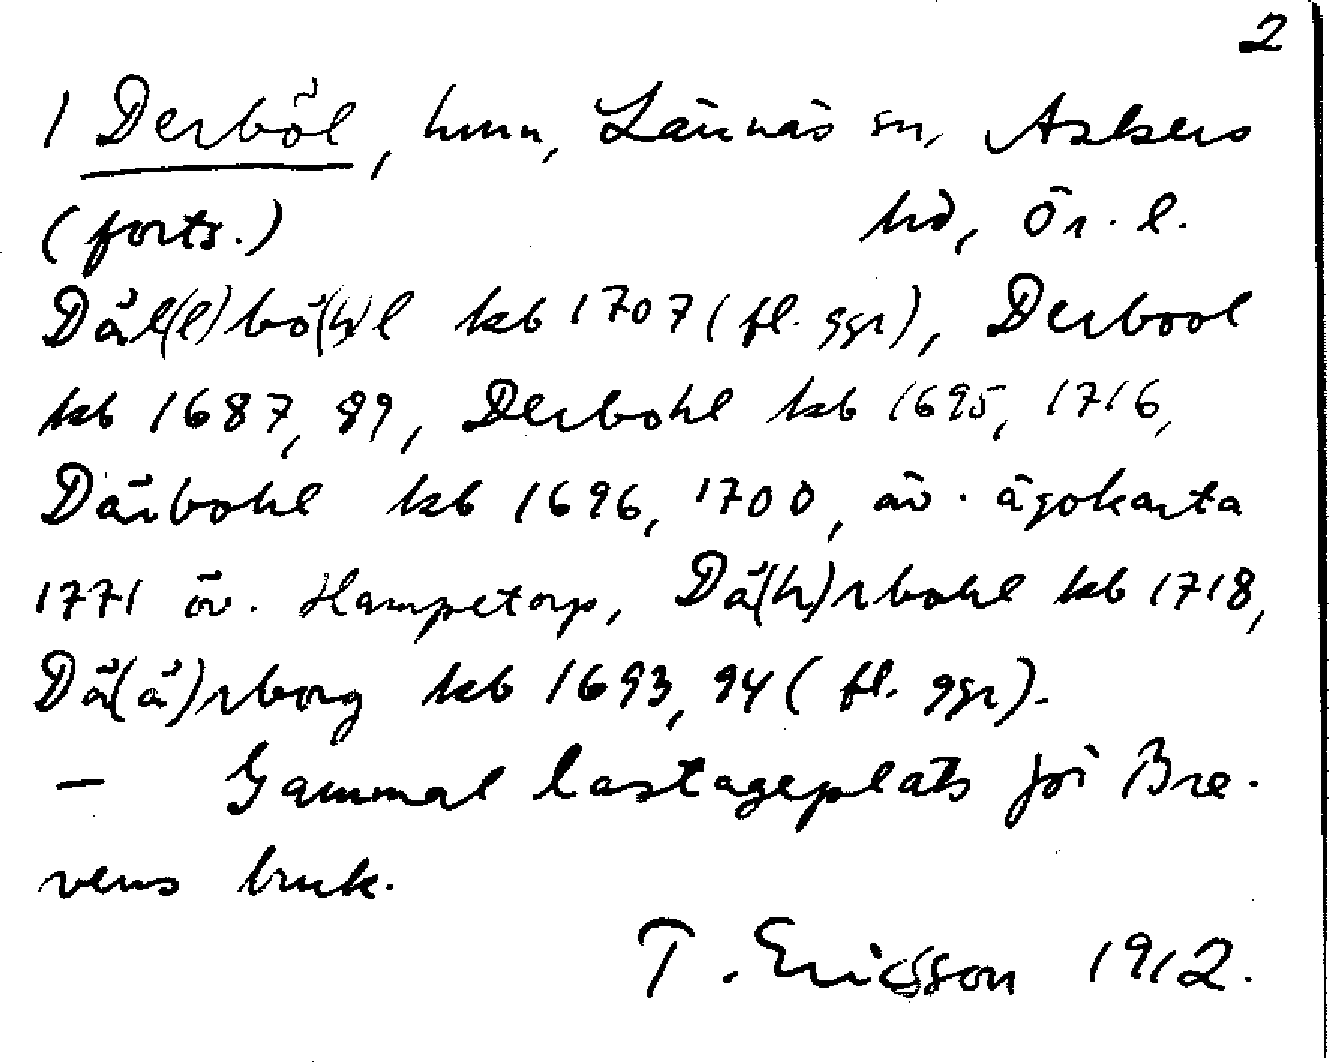 2
1 Derböl, hmn, Lännäs sn, Askers
(forts.) hd, Ör. l.
Däl(l)bö(h)l kb 1707 (fl. ggr), Derbool
kb 1687, 89, Derbohl kb 1695, 1716,
Därbohl kb 1696, 1700, äv. ägokarta
1771 öv. Hampetorp, Dä(h)rbohl kb 1718,
Dä(ä)rborg kb 1693, 94 (fl. ggr).
— Gammal lastageplats för Bre-
vens bruk.
T. Ericsson 1912.